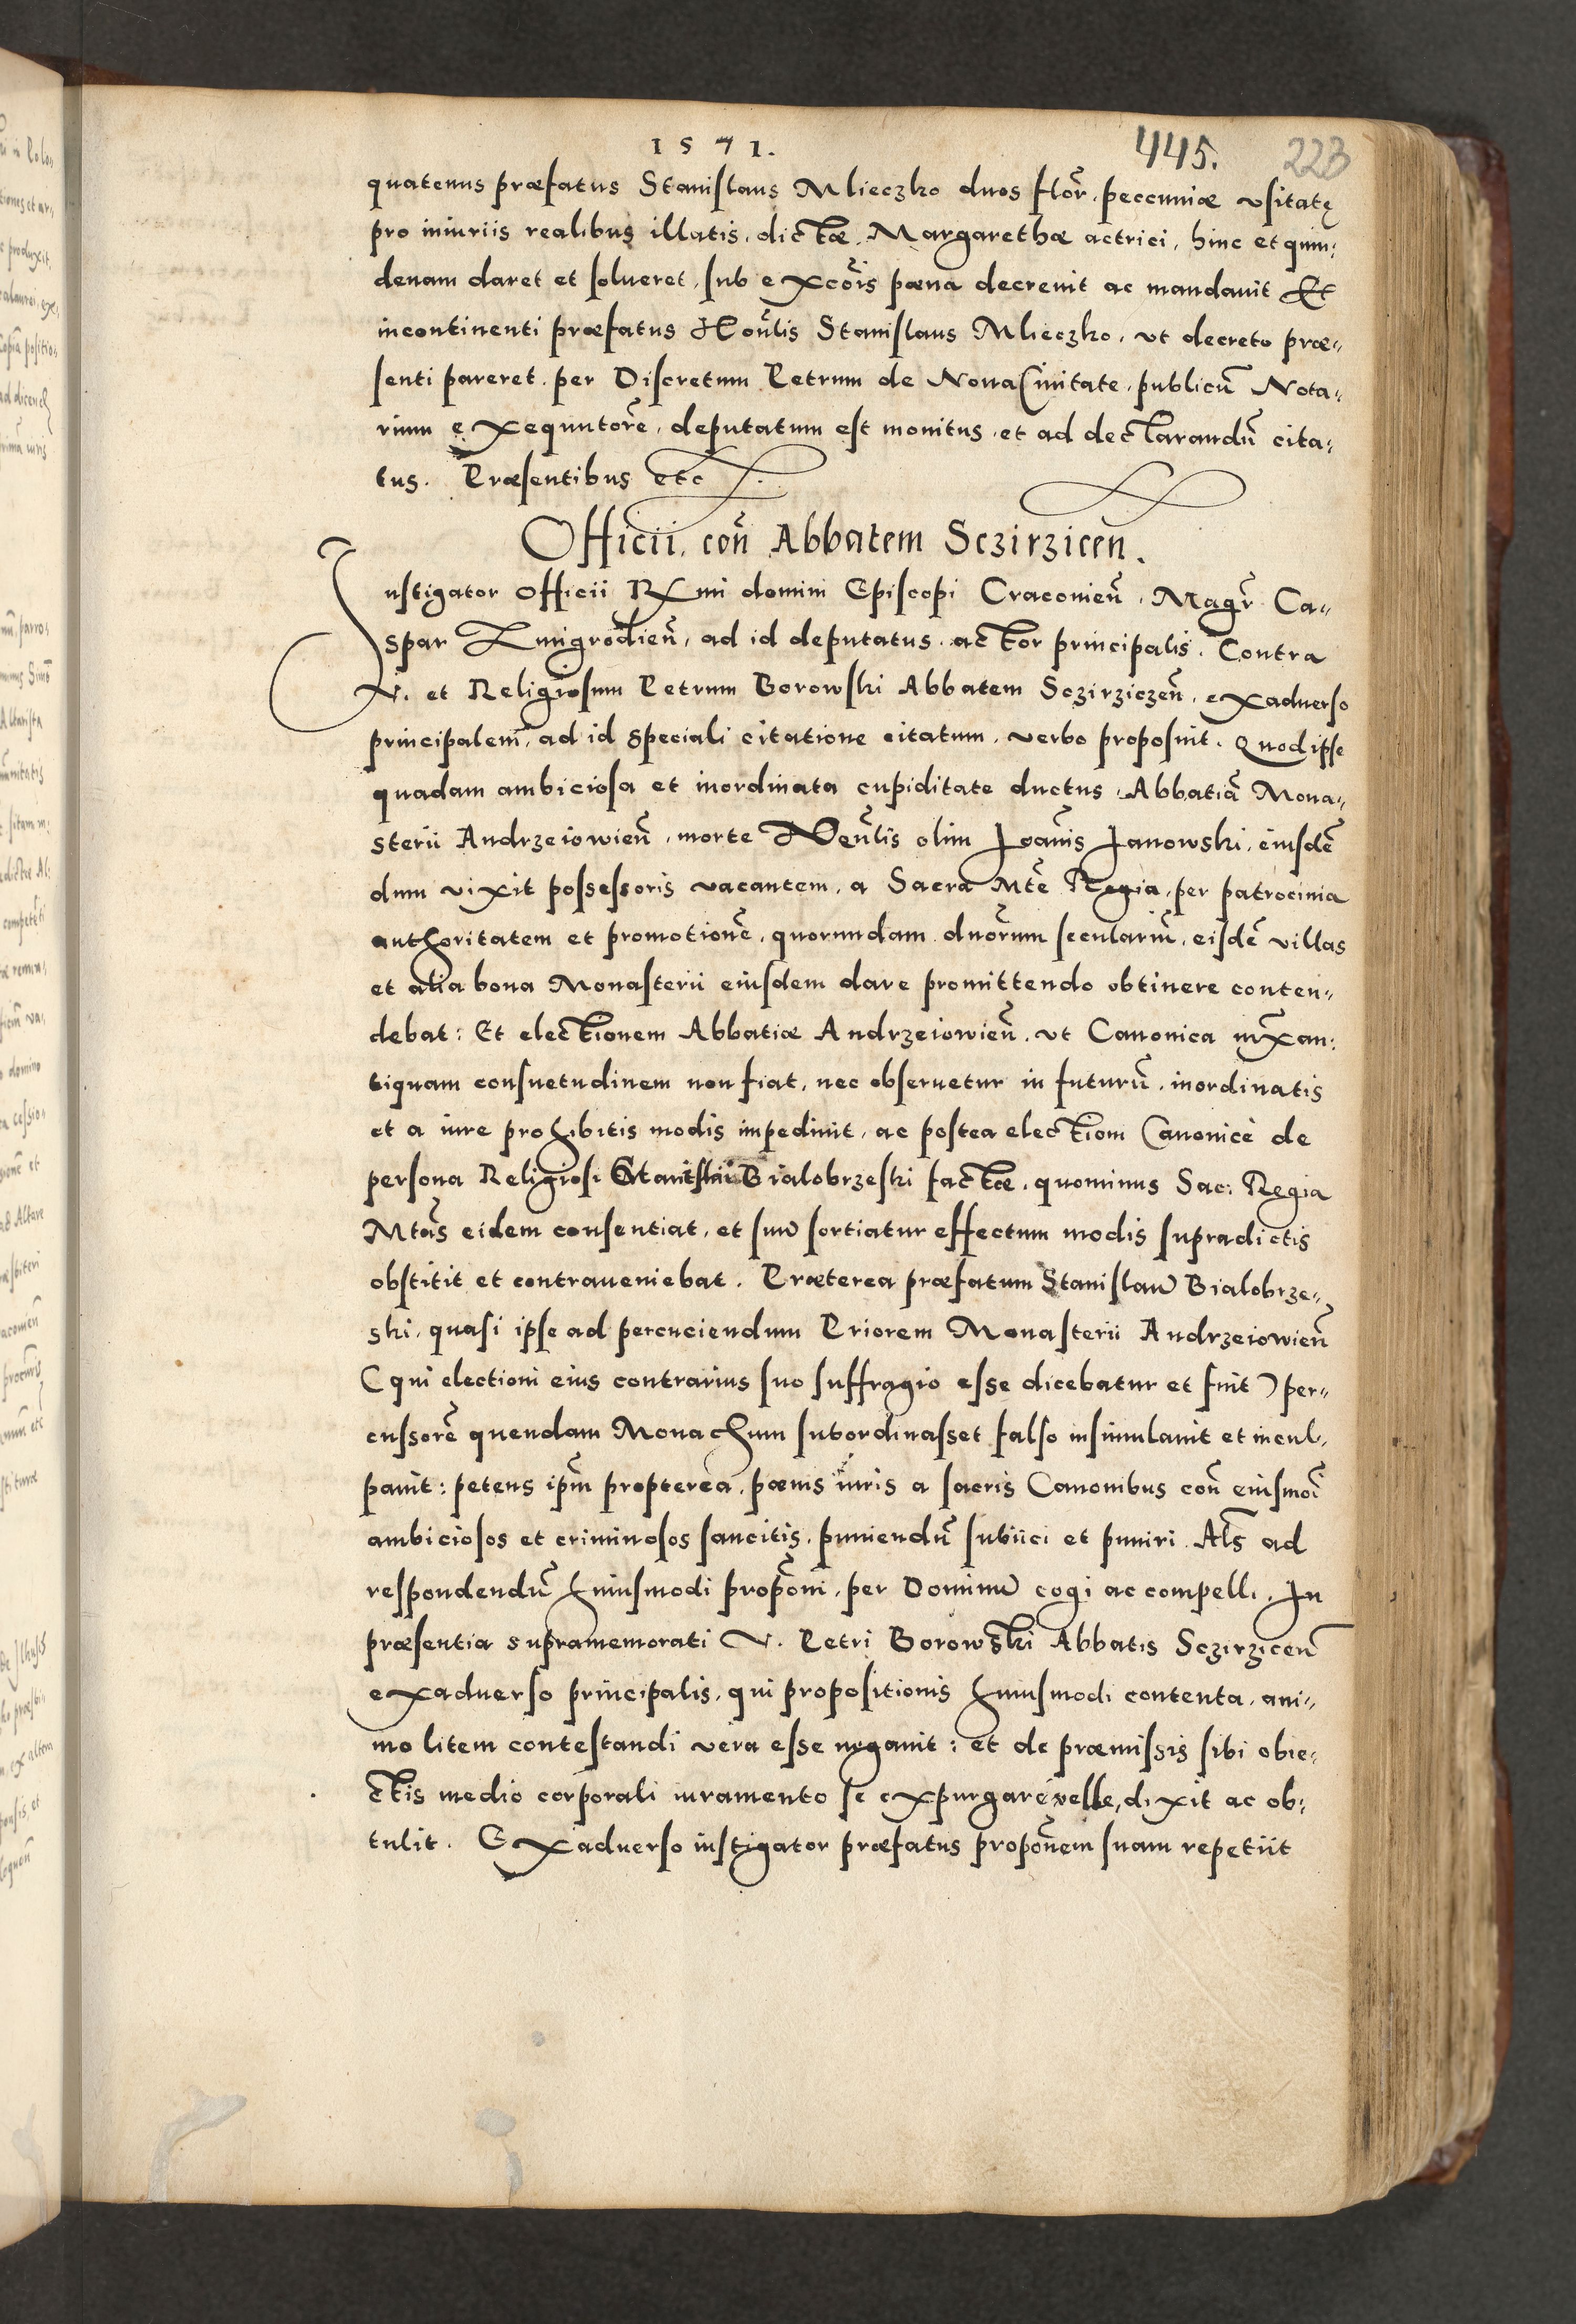 1571.
445. 223
quatenus præfatus Stanislaus Mlieczko duos flor̃. peccuniæ vsitatę
pro iniuriis realibus illatis, dictæ. Margarethæ actrici, hinc et quin:
denam daret et solueret, sub excõis pæna decreuit ac mandauit Et
incontinenti præfatus Hoñlis Stanislaus Mlieczko, vt decreto præ-
senti pareret. per Discretum Petrum de Noua Ciuitate, publicũ Nota-
rium exequutorẽ, deputatum est monitus, et ad declarandũ cita-
tus. Præsentibus etc
Officii, coñ Abbatem Sczirzicen̄.
Instigator Officii Rxmi domini Episcopi Cracouieñ, Magr̃ Ca-
spar Zmigrodieñ, ad id deputatus, actor principalis. Contra
V. et Religiosum Petrum Borowski Abbatem Sczirziczeñ, exaduerso
principalem, ad id speciali citatione citatum, verbo proposuit. Quod ipse
quadam ambiciosa et inordinata cupiditate ductus, Abbatiã Mona-
sterii Andrzeiowieñ, morte Veñlis olim Joañis Janowski, eiusdẽ
dum vixit possessoris vacantem, a Sacra Mtẽ Regia, per patrocinia
authoritatem et promotionẽ, quorundam dñorum seculariũ, eisdẽ villas
et alia bona Monasterii eiusdem dare promittendo obtinere conten-
debat: Et electionem Abbatiæ Andrzeiowieñ, vt Canonica iuxan:
tiquam consuetudinem non fiat, nec obseruetur in futurũ, inordinatis
et a iure prohibitis modis impediuit, ac postea electiom Canonicè de
persona Religiosi Stanislai Bialobrzeski factæ, quominus Sac: Regia
Mtãs eidem consentiat, et suũ sortiatur effectum modis supradictis
obstitit et contraueniebat. Præterea præfatum Stanislaũ Bialobrze-
ski, quasi ipse ad percuciendum Priorem Monasterii Andrzeiowieñ
(qui electioni eius contrarius suo suffragio esse dicebatur et fuit) per-
cussorẽ quendam Monachum subordinasset falso insimulauit et incul-
pauit: petens ipm̃ propterea, pænis iuris a sacris Canonibus coñ eiusmõi
ambiciosos et criminosos sancitis, puniendũ subiici et puniri. Als̃ ad
respondendũ huiusmodi propõni, per Dominũ cogi ac compelli. In
præsentia supramemorati V. Petri Borowski Abbatis Sczirziceñ
exaduerso principalis, qui propositionis huiusmodi contenta, ani-
mo litem contestandi vera esse negauit: et de præmissis sibi obie-
ctis medio corporali iuramento se expurgare velle, dixit ac ob-
tulit. Exaduerso instigator præfatus propõnem suam repetiit